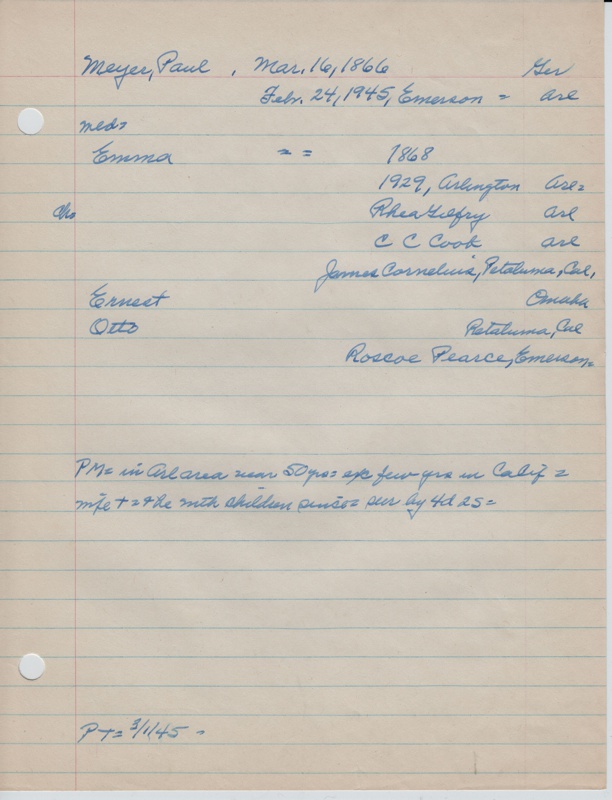 Meyer, Paul , Mar. 16, 1866 Ger
Febr. 24, 1945, Emerson = Arl
med=
Emma = = 1868
1929, Arlington Arl=
Chn Rhea Gilfry Arl
C C Cook Arl
James Cornelius, Petaluma, Cal,
Ernest Omaha
Otto Petaluma, Cal
Roscoe Pearce, Emerson=
PM= in Arl area near 50 yrs= exc few yrs in Calif =
wife + = & he with children since= sur by 4d 2s=
PT= 3/1/45 =